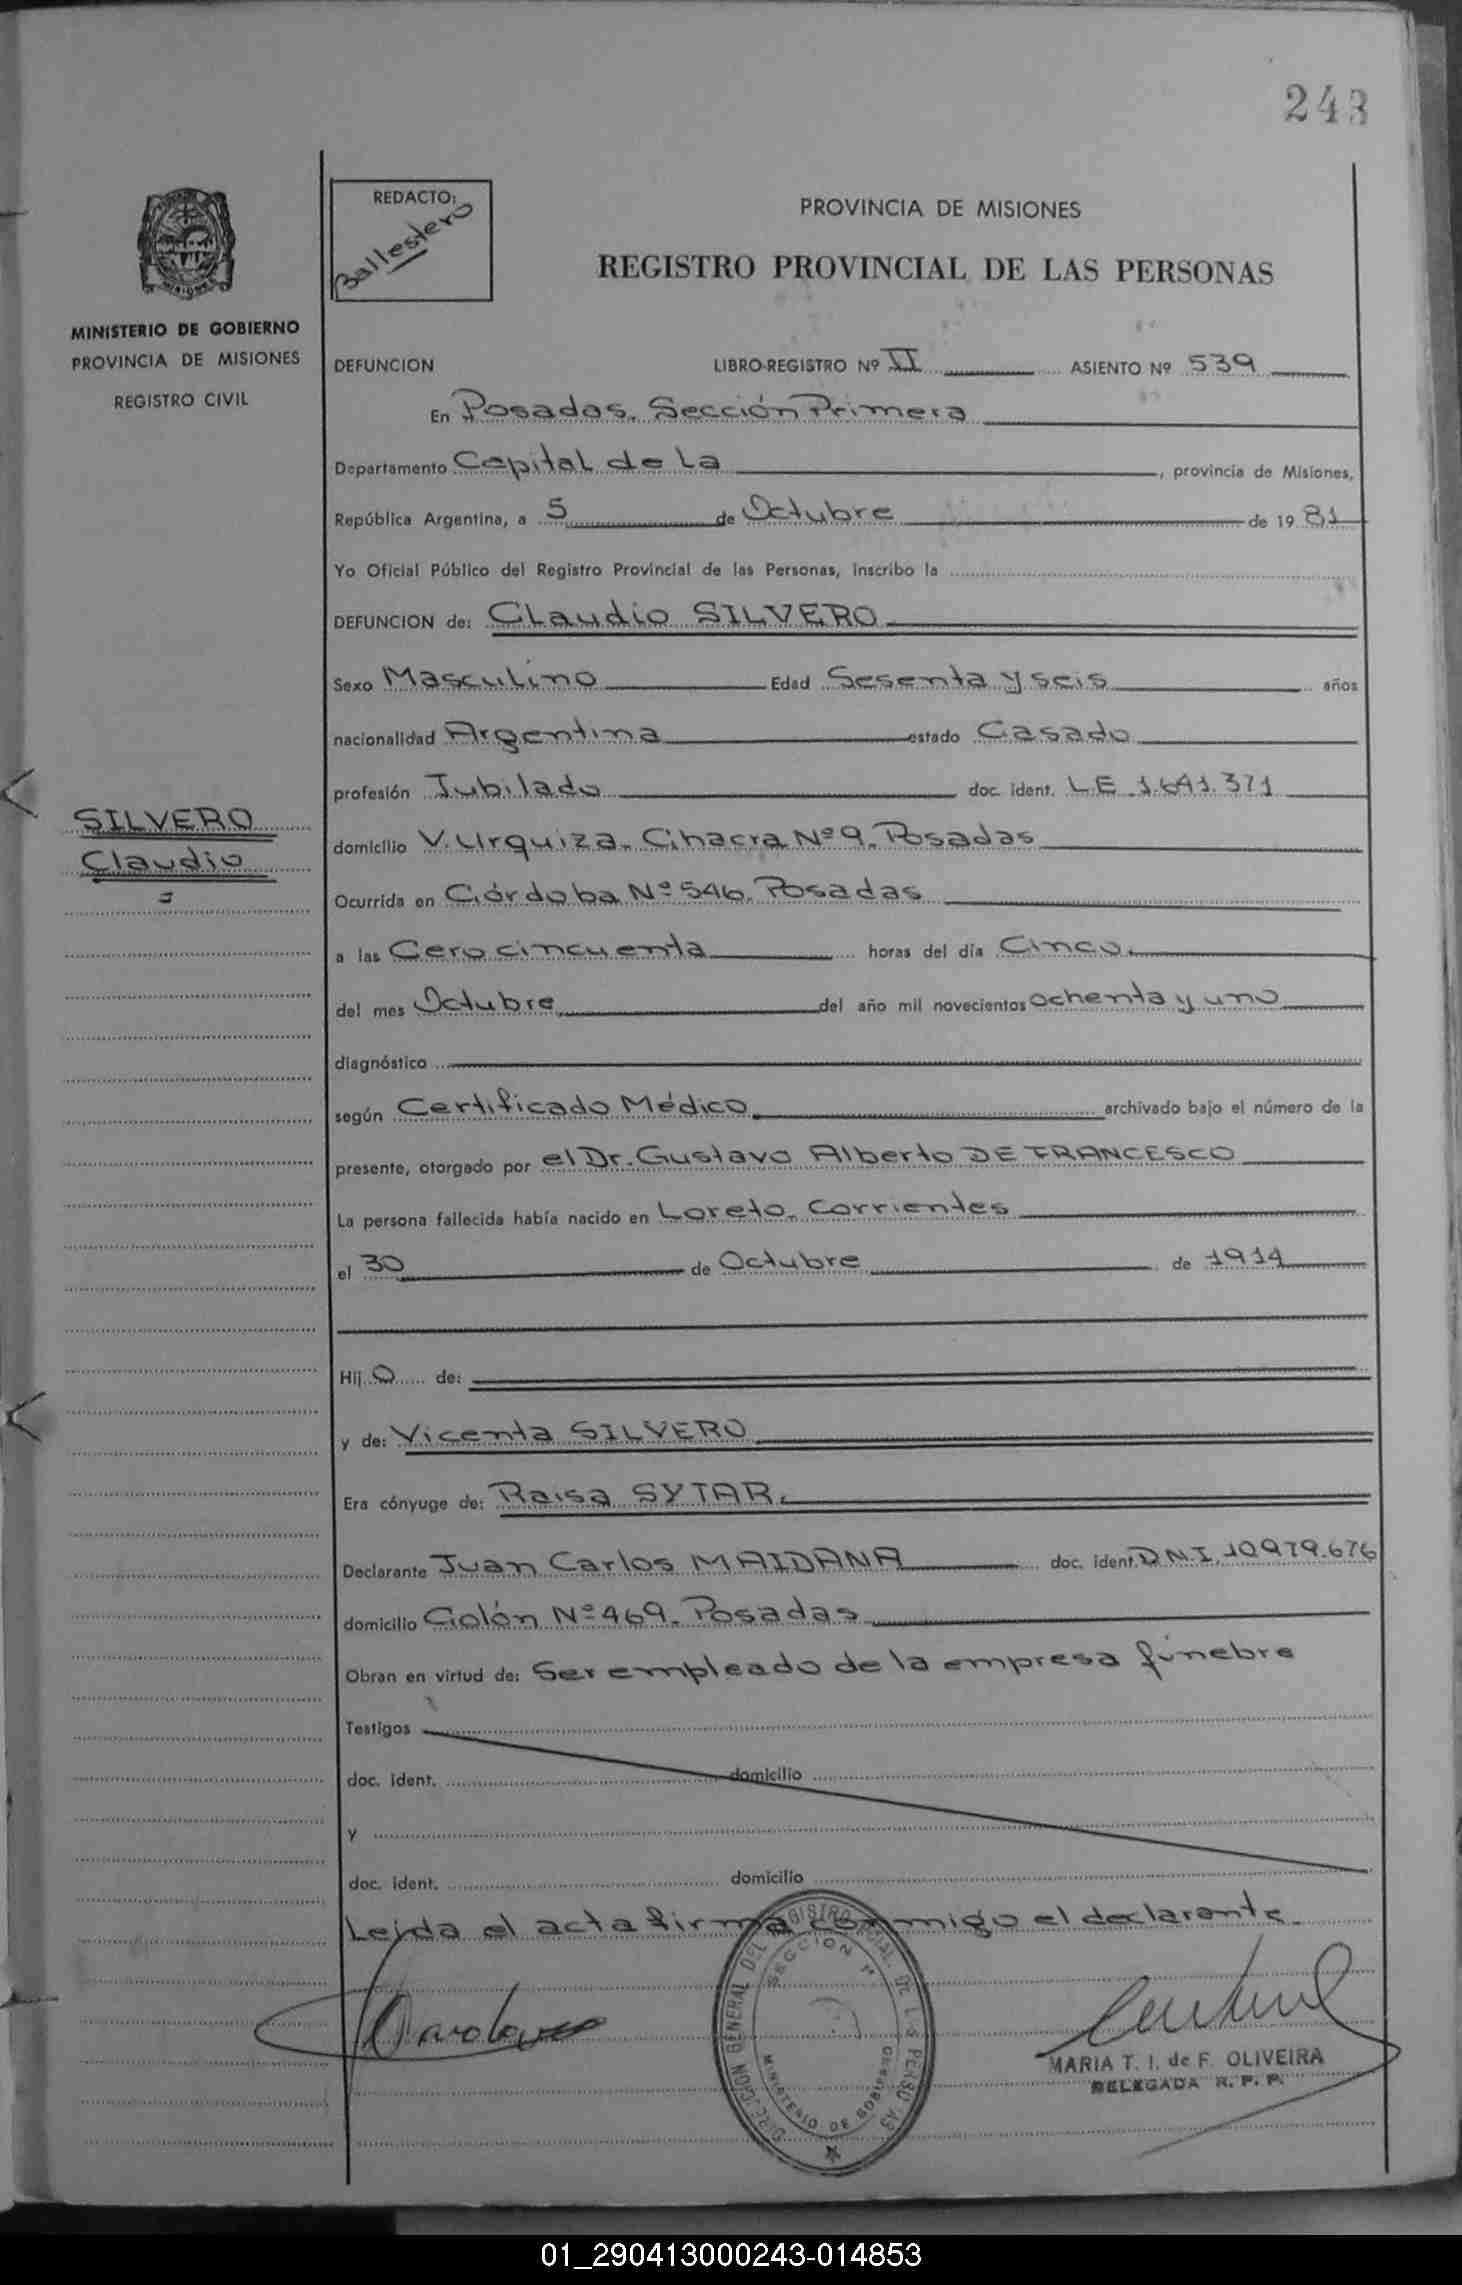 243
REDACTO:
Ballestero
PROVINCIA DE MISIONES
REGISTRO PROVINCIAL DE LAS PERSONAS
MINISTERIO DE GOBIERNO
PROVINCIA DE MISIONES
REGISTRO CIVIL
DEFUNCION LIBRO-REGISTRO Nº II ASIENTO Nº 539
En Posadas. Sección Primera
Departamento Capital de La, provincia de Misiones,
República Argentina, a 5 de Octubre de 1981
Yo Oficial Público del Registro Provincial de las Personas, inscribo la
DEFUNCION de: Claudio SILVERO
Sexo Masculino Edad Sesenta y seis años
nacionalidad Argentina estado Casado
profesión Jubilado doc. ident. L E 1.641.371
SILVERO
Claudio
domicilio V. Urquiza. Chacra Nº 9. Posadas
Ocurrida en Córdoba Nº 546. Posadas
a las Cero cincuenta horas del día Cinco.
del mes Octubre del año mil novecientos ochenta y uno
diagnóstico
según Certificado Médico archivado bajo el número de la
presente, otorgado por el Dr. Gustavo Alberto DE FRANCESCO
La persona fallecida había nacido en Loreto. Corrientes
el 30 de Octubre de 1914
Hij o de:
y de: Vicenta SILVERO
Era cónyuge de: Raisa SYTAR.
Declarante Juan Carlos MAIDANA doc. ident. D.N.I. 10.979.676
domicilio Colón Nº 469. Posadas
Obran en virtud de: Ser empleado de la empresa fúnebre
Testigos
doc. ident. domicilio
y
doc. ident. domicilio
Leida el acta firma conmigo el declarante.
DIRECCION GENERAL DEL REGISTRO PROVINCIAL DE LAS PERSONAS
SECCION 1ª
MINISTERIO DE GOBIERNO
MARIA T. I. de F. OLIVEIRA
DELEGADA R. P. P.
01_290413000243-014853